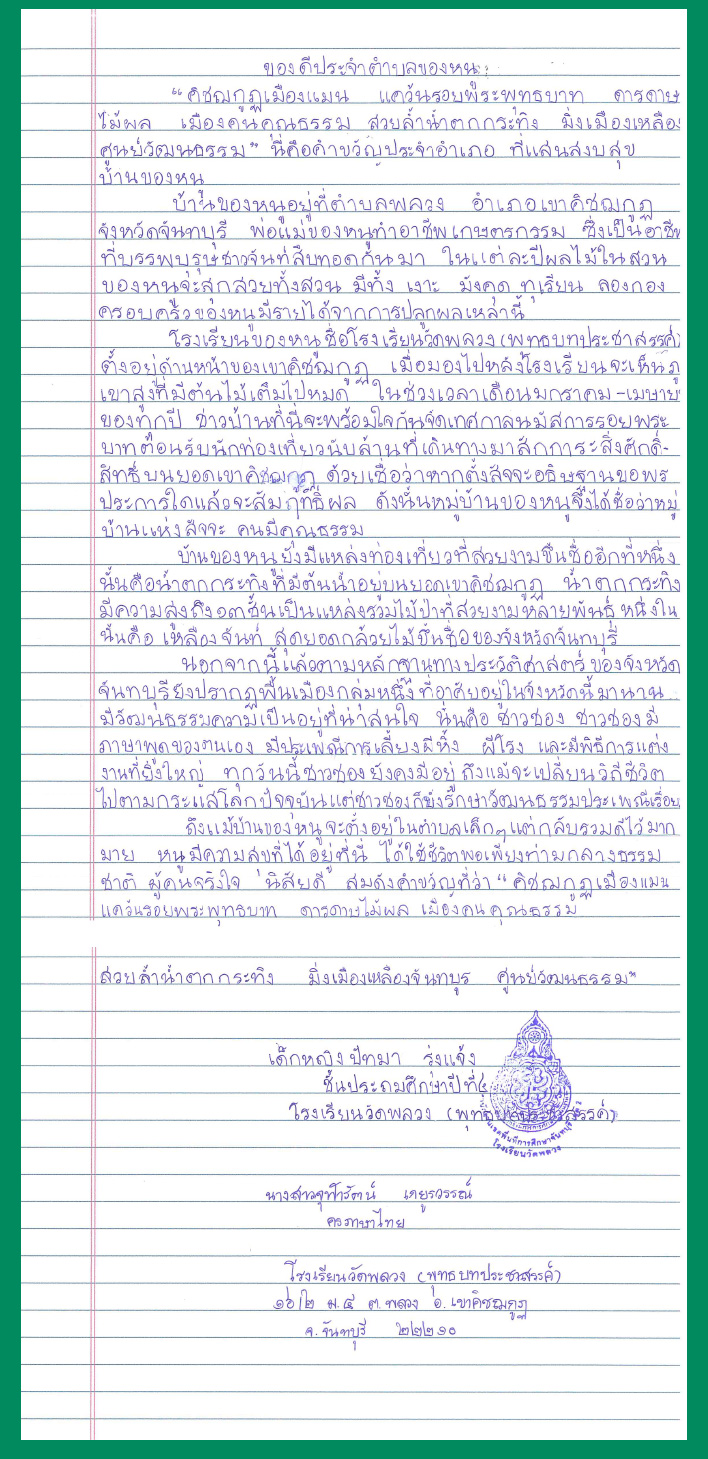 ของดีประจำตำบลของหนู
"คิชฌกูฏเมืองแมน แคว้นรอยพระพุทธบาท ดารดาษ
ไม้ผล เมืองคนคุณธรรม สวยล้ำน้ำตกกระทิง มิ่งเมืองเหลือง
ศูนย์วัฒนธรรม" นี่คือคำขวัญประจำอำเภอ ที่แสนสงบสุข
บ้านของหนู
บ้านของหนูอยู่ที่ตำบลพลวง อำเภอเขาคิชฌกูฏ
จังหวัดจันทบุรี พ่อแม่ของหนูทำอาชีพเกษตรกรรม ซึ่งเป็นอาชีพ
ที่บรรพบุรุษชาวจันท์สืบทอดกันมา ในแต่ละปีผลไม้ในสวน
ของหนูจะสุกสวยทั้งสวน มีทั้ง เงาะ มังคุด ทุเรียน ลองกอง
ครอบครัวของหนูมีรายได้จากการปลูกผลเหล่านี้
โรงเรียนของหนูชื่อโรงเรียนวัดพลวง(พุทธบทประชาสรรค์)
ตั้งอยู่ด้านหน้าของเขาคิชฌกูฏ เมื่อมองไปหลังโรงเรียนจะเห็นภู
เขาสูงที่มีต้นไม้เต็มไปหมด ในช่วงเวลาเดือนมกราคม-เมษาย
ของทุกปี ชาวบ้านที่นี่จะพร้อมใจกันจัดเทศกาลนมัสการรอยพระ
บาทต้อนรับนักท่องเที่ยวนับล้านที่เดินทางมาสักการะสิ่งศักดิ์-
สิทธิ์บนยอดเขาคิชฌกูฏ ด้วยเชื่อว่าหากตั้งสัจจะอธิษฐานขอพร
ประการใดแล้วจะสัมฤทธิ์ผล ดังนั้นหมู่บ้านของหนูจึงได้ชื่อว่าหมู่
บ้านแห่งสัจจะ คนมีคุณธรรม
บ้านของหนูยังมีแหล่งท่องเที่ยวที่สวยงามขึ้นชื่ออีกที่หนึ่ง
นั้นคือน้ำตกกระทิงที่มีต้นน้ำอยู่บนยอดเขาคิชฌกูฏ น้ำตกกระทิง
มีความสูงถึง๑๓ชั้นเป็นแหล่งรวมไม้ป่าที่สวยงามหลายพันธุ์ หนึ่งใน
นั้นคือ เหลืองจันท์ สุดยอดกล้วยไม้ขึ้นชื่อของจังหวัดจันทบุรี
นอกจากนี้แล้วตามหลักฐานทางประวัติศาสตร์ของจังหวัด
จันทบุรียังปรากฏพื้นเมืองกลุ่มหนึ่งที่อาศัยอยู่ในจังหวัดนี้มานาน
มีวัฒนธรรมความเป็นอยู่ที่น่าสนใจ นั่นคือ ชาวชอง ชาวชองมี
ภาษาพูดของตนเอง มีประเพณีการเลี้ยงผีหิ้ง ผีโรง และมีพิธีการแต่ง
งานที่ยิ่งใหญ่ ทุกวันนี้ชาวชองยังคงมีอยู่ ถึงแม้จะเปลี่ยนวิถีชีวิต
ไปตามกระแสโลกปัจจุบันแต่ชาวชองก็ยังรักษาวัฒนธรรมประเพณีเรื่อย
ถึงแม้บ้านของหนูจะตั้งอยู่ในตำบลเล็กๆแต่กลับรวมดีไว้มาก
มาย หนูมีความสุขที่ได้อยู่ที่นี่ ได้ใช้ชีวิตพอเพียงท่ามกลางธรรม
ชาติ ผู้คนจริงใจ นิสัยดี สมดังคำขวัญที่ว่า "คิชฌกูฏเมืองแมน
แคว้นรอยพระพุทธบาท ดารดาษไม้ผล เมืองคนคุณธรรม
สวยล้ำน้ำตกกระทิง มิ่งเมืองเหลืองจันทบูร ศูนย์วัฒนธรรม"
เด็กหญิงปัทมา รุ่งแจ้ง
ชั้นประถมศึกษาปีที่
โรงเรียนวัดพลวง (พุทธบทประชาสรรค์)
โรงเรียนวัดพลวง
นางสาวจุฬารัตน์ เกยูรวรรณ์
ครูภาษาไทย
โรงเรียนวัดพลวง (พุทธบทประชาสรรค์)
๑๖/๒ ม.๔ ต.พลวง อ.เขาคิชฌกูฏ
จ.จันทบุรี ๒๒๒๑๐